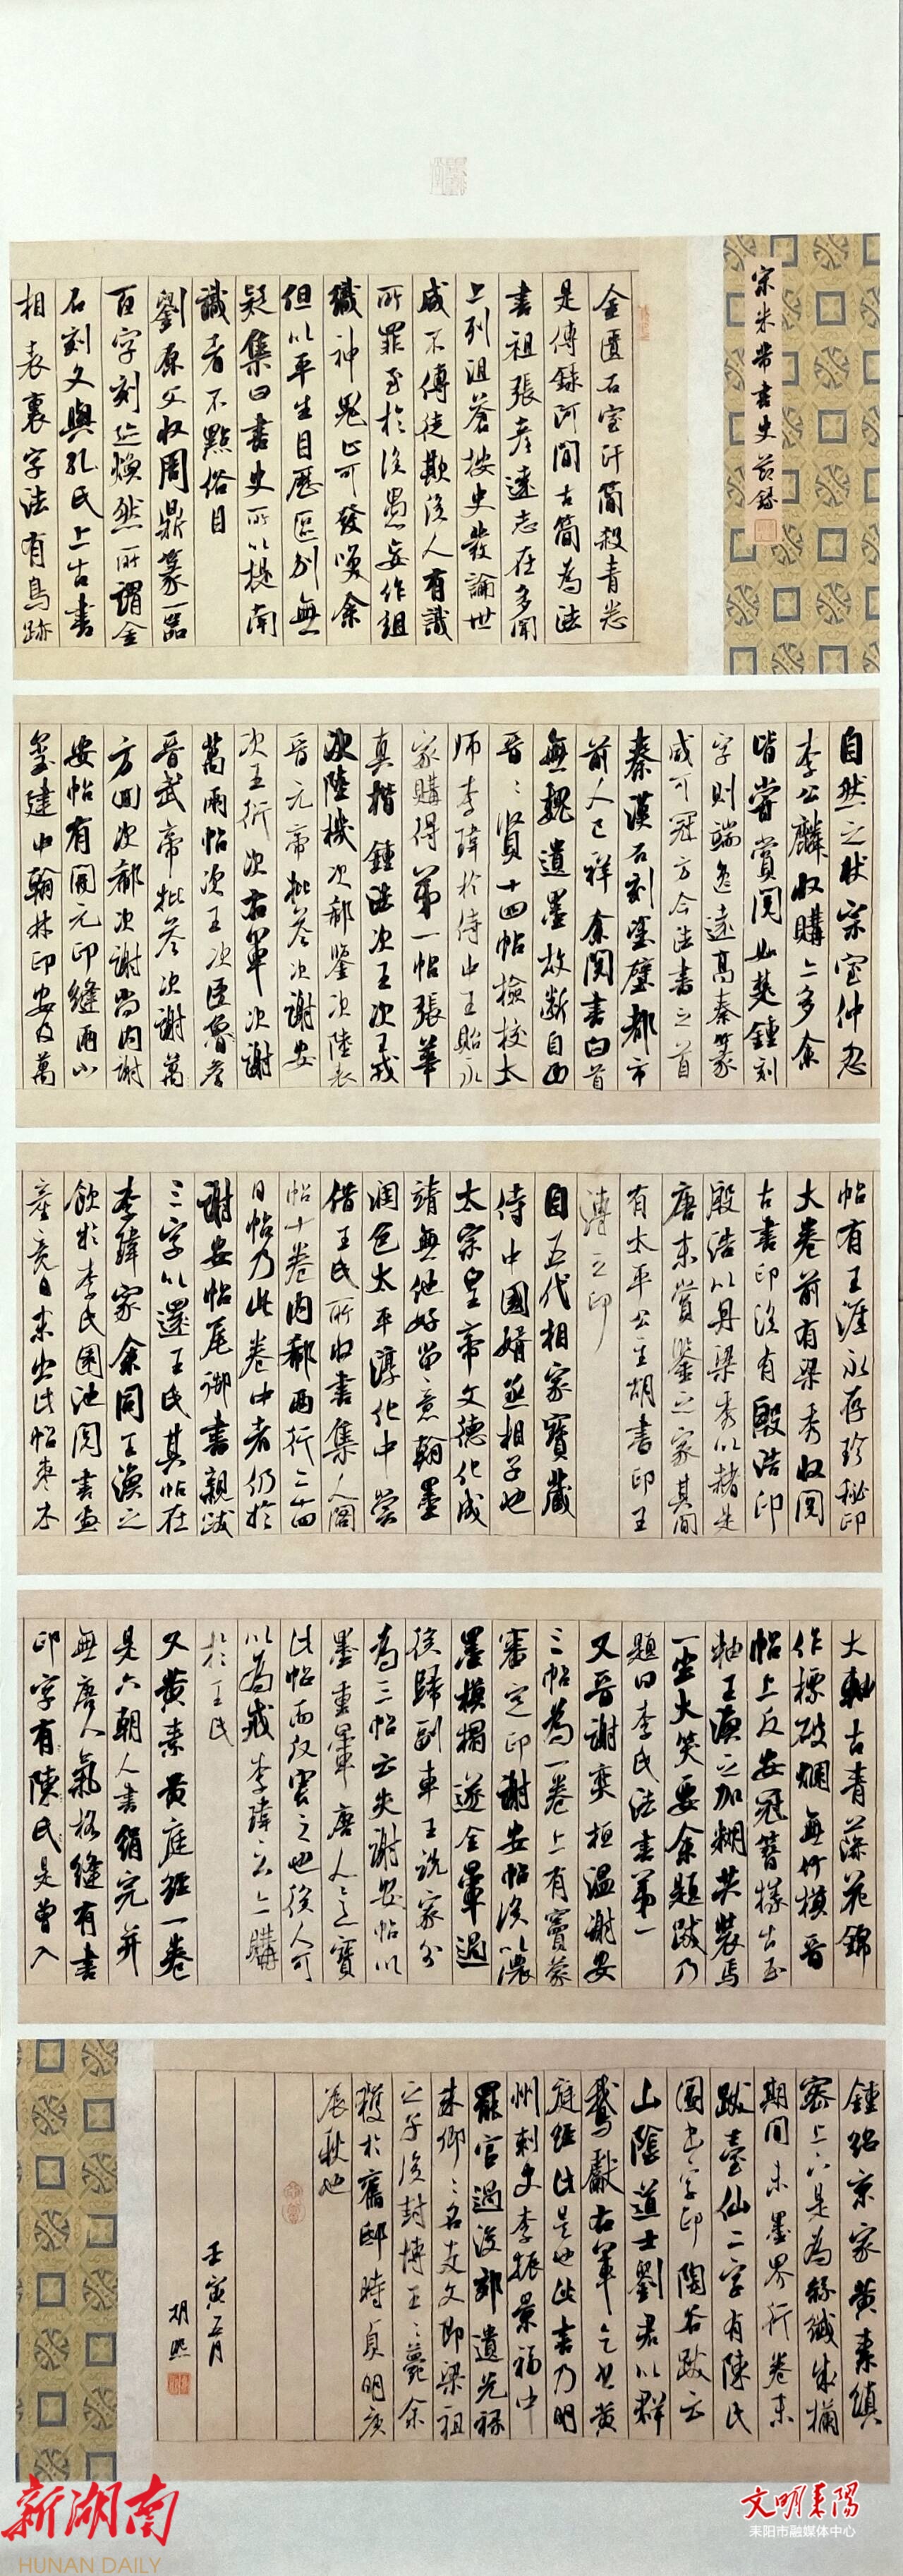 宋米芾書史節錄
金匱石室汗簡殺青悉
是傳錄河間古簡為法
書祖張彥遠志在多聞
上列沮蒼按史發論世
咸不傳徒欺後人有識
所罪至於後愚妄作組
織神鬼止可發笑余
但以平生目歷區別無
疑集曰書史所以提南
識者不點俗目
劉原父收周鼎篆一器
百字刻迹煥然所謂金
石刻文與孔氏上古書
相表裏字法有鳥跡
自然之狀宗室仲忽
李公麟收購亦多余
皆嘗賞閱如楚鐘刻
字則端逸遠高秦篆
咸可冠方今法書之首
秦漢石刻塗壁都市
前人已詳余閱書白首
無魏遺墨故斷自西
晉晉賢十四帖檢校太
師李瑋於侍中王貽永
家購得第一帖張華
真楷鍾法次王次王戎
次陸機次郗鑒次陸表
晉元帝批答次謝安
次王衍次右軍次謝
萬兩帖次王次臣詹答
晉武帝批答次謝萬
方回次郗次謝尚內謝
安帖有開元印縫兩小
璽建中翰林印安及萬
帖有王涯永存珍秘印
大卷前有梁秀收閱
古書印後有殷浩印
殷浩以丹梁秀以赭是
唐末賞鑒之家其間
有太平公主胡書印王
溥之印
自五代相家寶藏
侍中國婿丞相子也
太宗皇帝文德化成
靖無他好留意翰墨
潤色太平淳化中嘗
借王氏所收書集入閣
帖十卷內郗兩行二十四
日帖乃此卷中者仍於
謝安帖尾御書親跋
三字以還王氏其帖在
李瑋家余同王渙之
飲於李氏園池閱書畫
竟日末出此帖棗木
大軸古青藻花錦
作褾破爛無竹模晉
帖上反安冠簪樣古玉
軸王渙之加糊共裝焉
一坐大笑要余題跋乃
題曰李氏法書第一
又晉謝奕桓溫謝安
三帖為一卷上有竇蒙
審定印謝安帖後以濃
墨模搨遂全暈過
後歸副車王詵家分
為三帖云失謝安帖以
墨重暈唐人意寶
此帖而反害之也後人可
以為戒李瑋云亦購
於王氏
又黃素黃庭經一卷
是六朝人書絹完并
無唐人氣格縫有書
印字有陳氏是曾入
鍾紹京家黃素縝
密上下是為絲織成欄
期間朱墨界行卷末
跋臺仙二字有陳氏
圖書字印陶穀跋云
山陰道士劉君以群
鵝獻右軍乞書黃
庭經此是也此書乃明
州刺史李振景福中
罷官過浚郊遺光祿
朱卿卿名友文即梁祖
之子後封博王王薨余
獲於舊邸時貞明庚
辰秋也
壬寅五月
胡熙
新湖南
HUNAN DAILY
文明耒陽
耒阳市融媒体中心